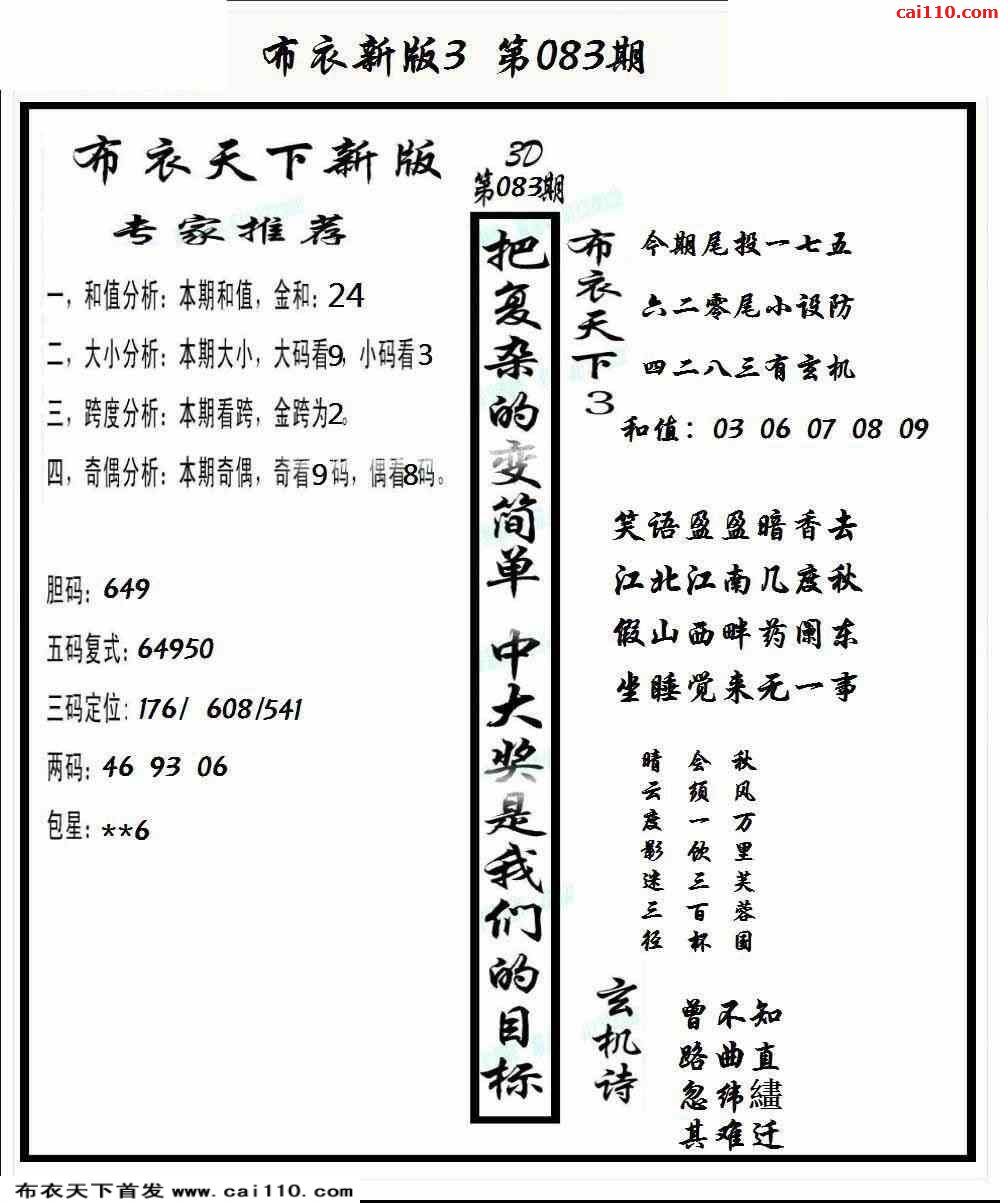 cai110.com
布衣新版3 第083期
布衣天下新版
专家推荐
一，和值分析：本期和值，金和：24
二，大小分析：本期大小，大码看9，小码看3
三，跨度分析：本期看跨，金跨为2。
四，奇偶分析：本期奇偶，奇看9码，偶看8码。
胆码：649
五码复式：64950
三码定位：176/ 608/541
两码：46 93 06
包星：**6
3D
第083期
把复杂的变简单 中大奖是我们的目标
布衣天下3
今期尾投一七五
六二零尾小设防
四二八三有玄机
和值：03 06 07 08 09
笑语盈盈暗香去
江北江南几度秋
假山西畔药阑东
坐睡觉来无一事
秋风万里芙蓉国
会须一饮三百杯
晴云度影迷三径
玄机诗
曾不知
路曲直
忽纬繣
其难迁
布衣天下首发 www.cai110.com